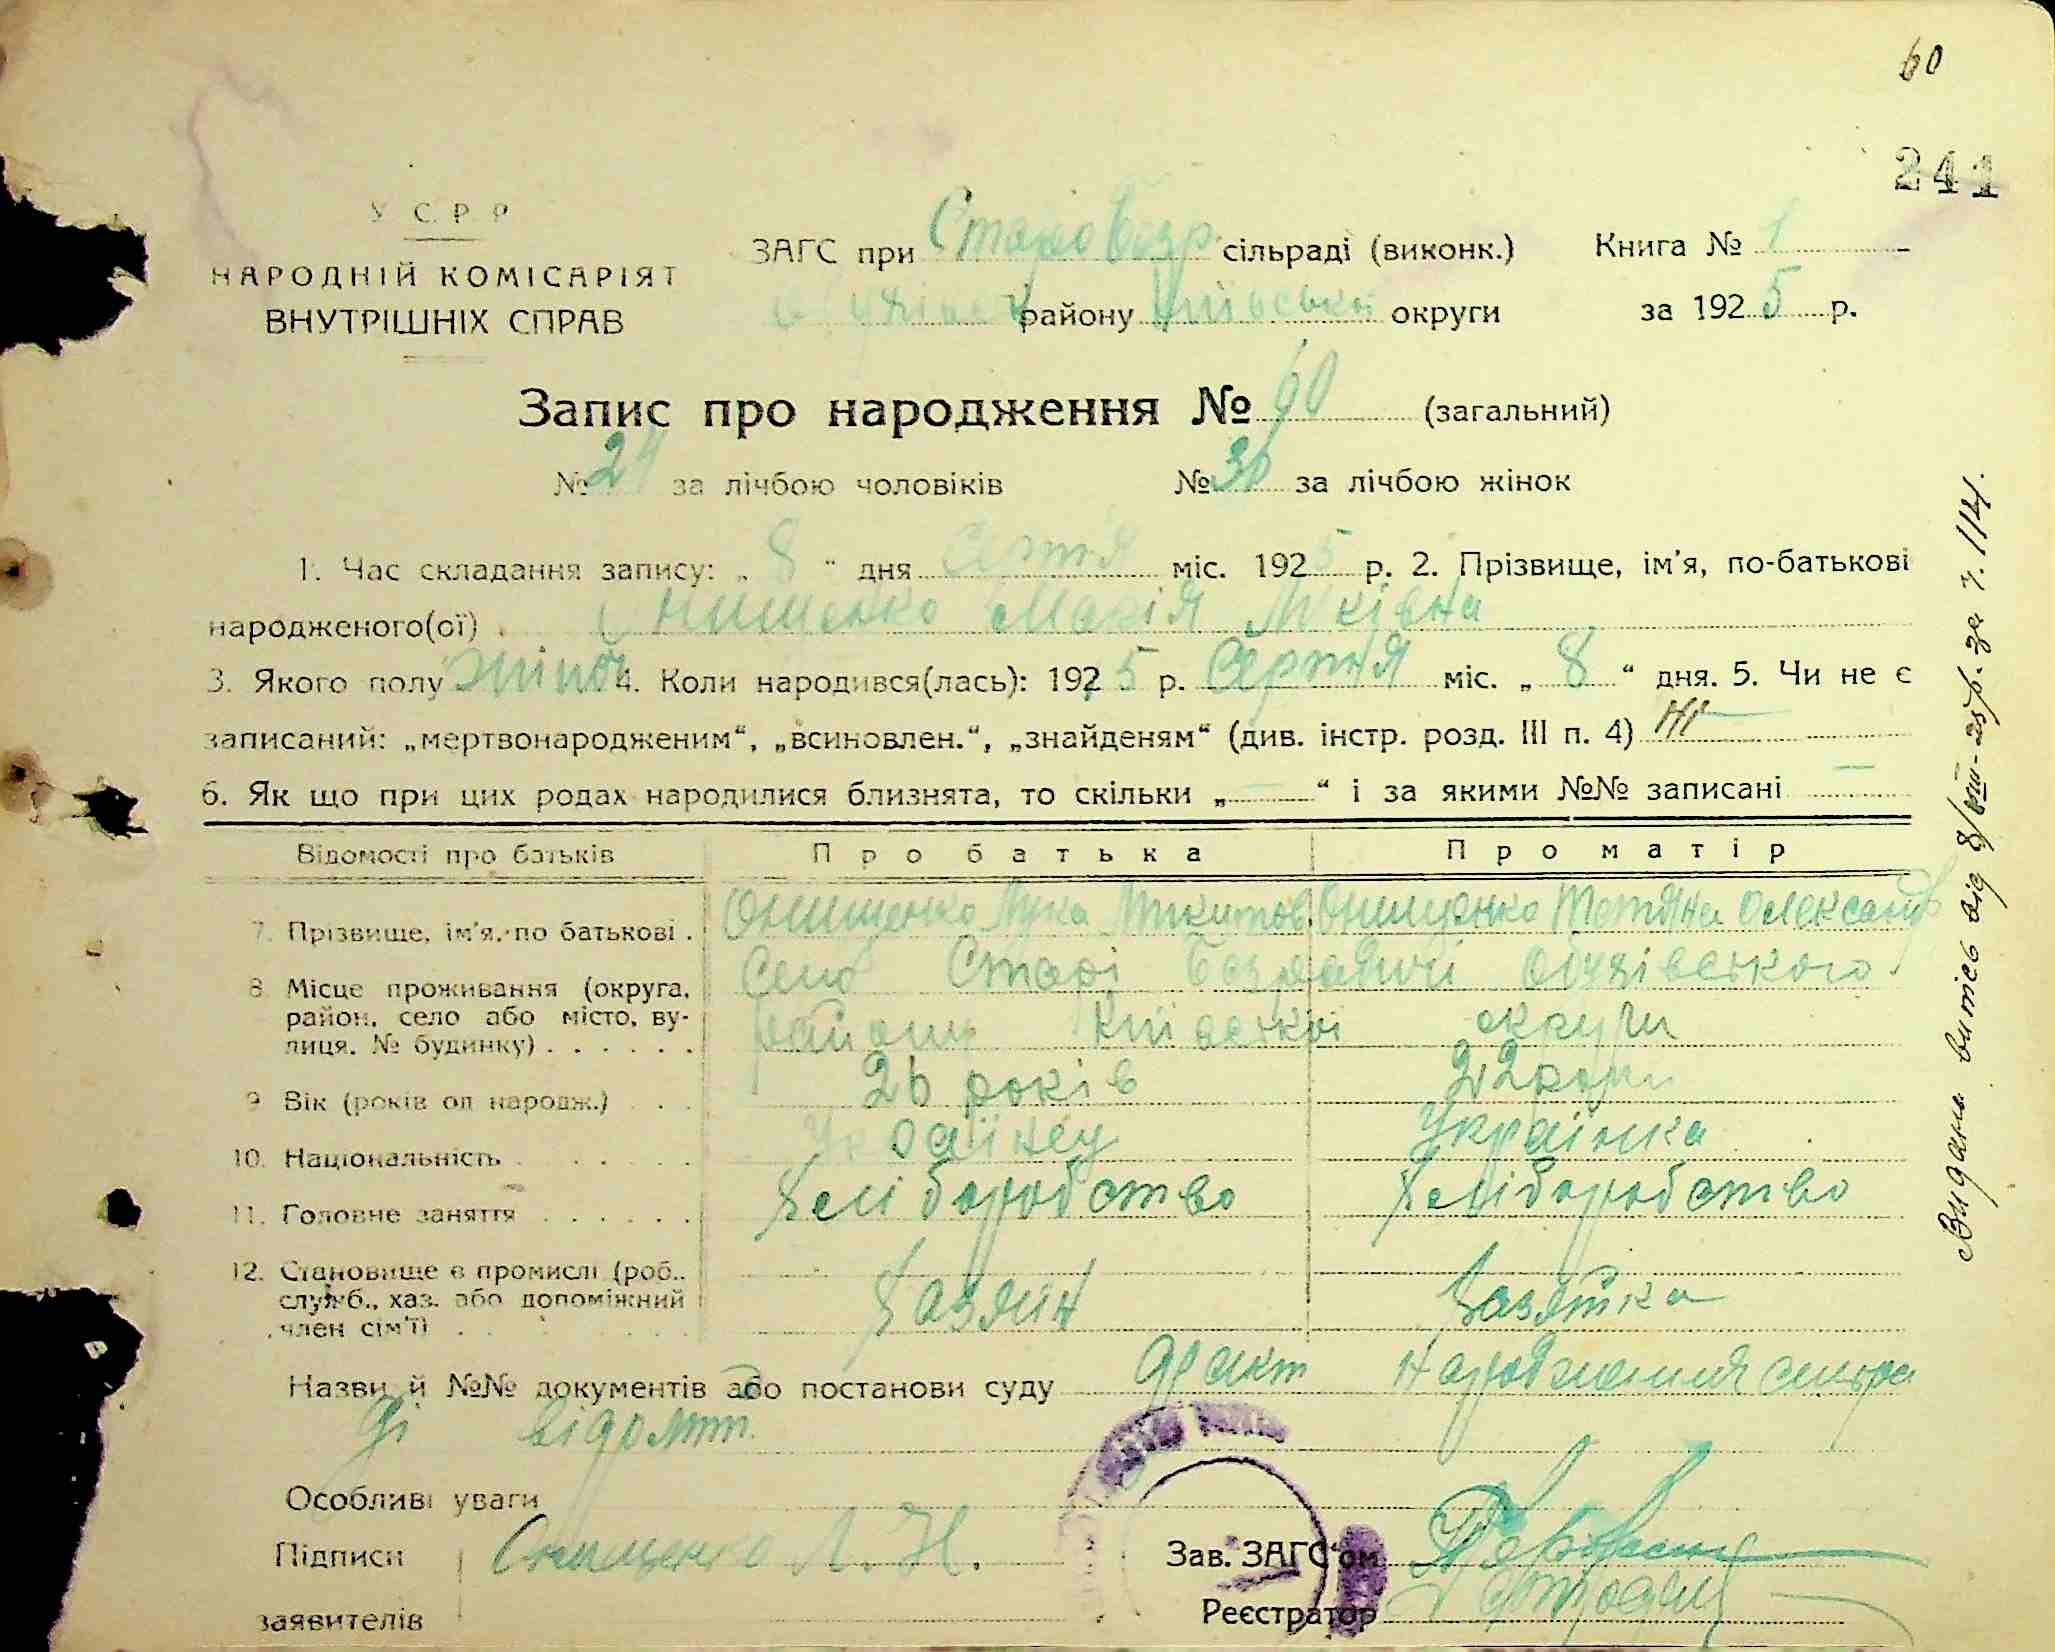 60
241
У С. Р Р
НАРОДНІЙ КОМІСАРІЯТ
ВНУТРІШНІХ СПРАВ
ЗАГС при СтароБезр. сільраді (виконк.) Книга № 1
району Київської округи за 1925 р.
Запис про народження № 60 (загальний)
№ 24 за лічбою чоловіків № 36 за лічбою жінок
1. Час складання запису: „ 8 “ дня Серпня міс. 1925 р. 2. Прізвище, ім'я, по-батькові
народженого(ої) Онищенко Марія
3. Якого полу жіноч 4. Коли народився(лась): 1925 р. Серпня міс. „ 8 “ дня. 5. Чи не є
записаний: „мертвонародженим“, „всиновлен.“, „знайденям“ (див. інстр. розд. III п. 4) ні
6. Як що при цих родах народилися близнята, то скільки „ — “ і за якими №№ записані —
Відомості про батьків Про батька Про матір
7. Прізвище, ім'я, по батькові . Онищенко Лука Микитов. Онищенко Тетяна Олександ
8. Місце проживання (округа, район, село або місто, ву- лиця, № будинку) . . . . . . Село Старі Безрадичі Обухівського
району Київської округи
9. Вік (років од народж.) . . . 26 років 22 роки
10. Національність . . . . . . Українец Українка
11. Головне заняття . . . . . . Хліборобство Хліборобство
12. Становище в промислі (роб., служб., хаз. або допоміжний член сім'ї) Хазяїн Хазяйка
Назви й №№ документів або постанови суду факт народження сільра
ді відомий.
Особливі уваги
Підписи Онищенко Л. Н. Зав. ЗАГС'ом
заявителів Реєстратор
Видань витясь від 8/VIII-25р. за ч. 114.